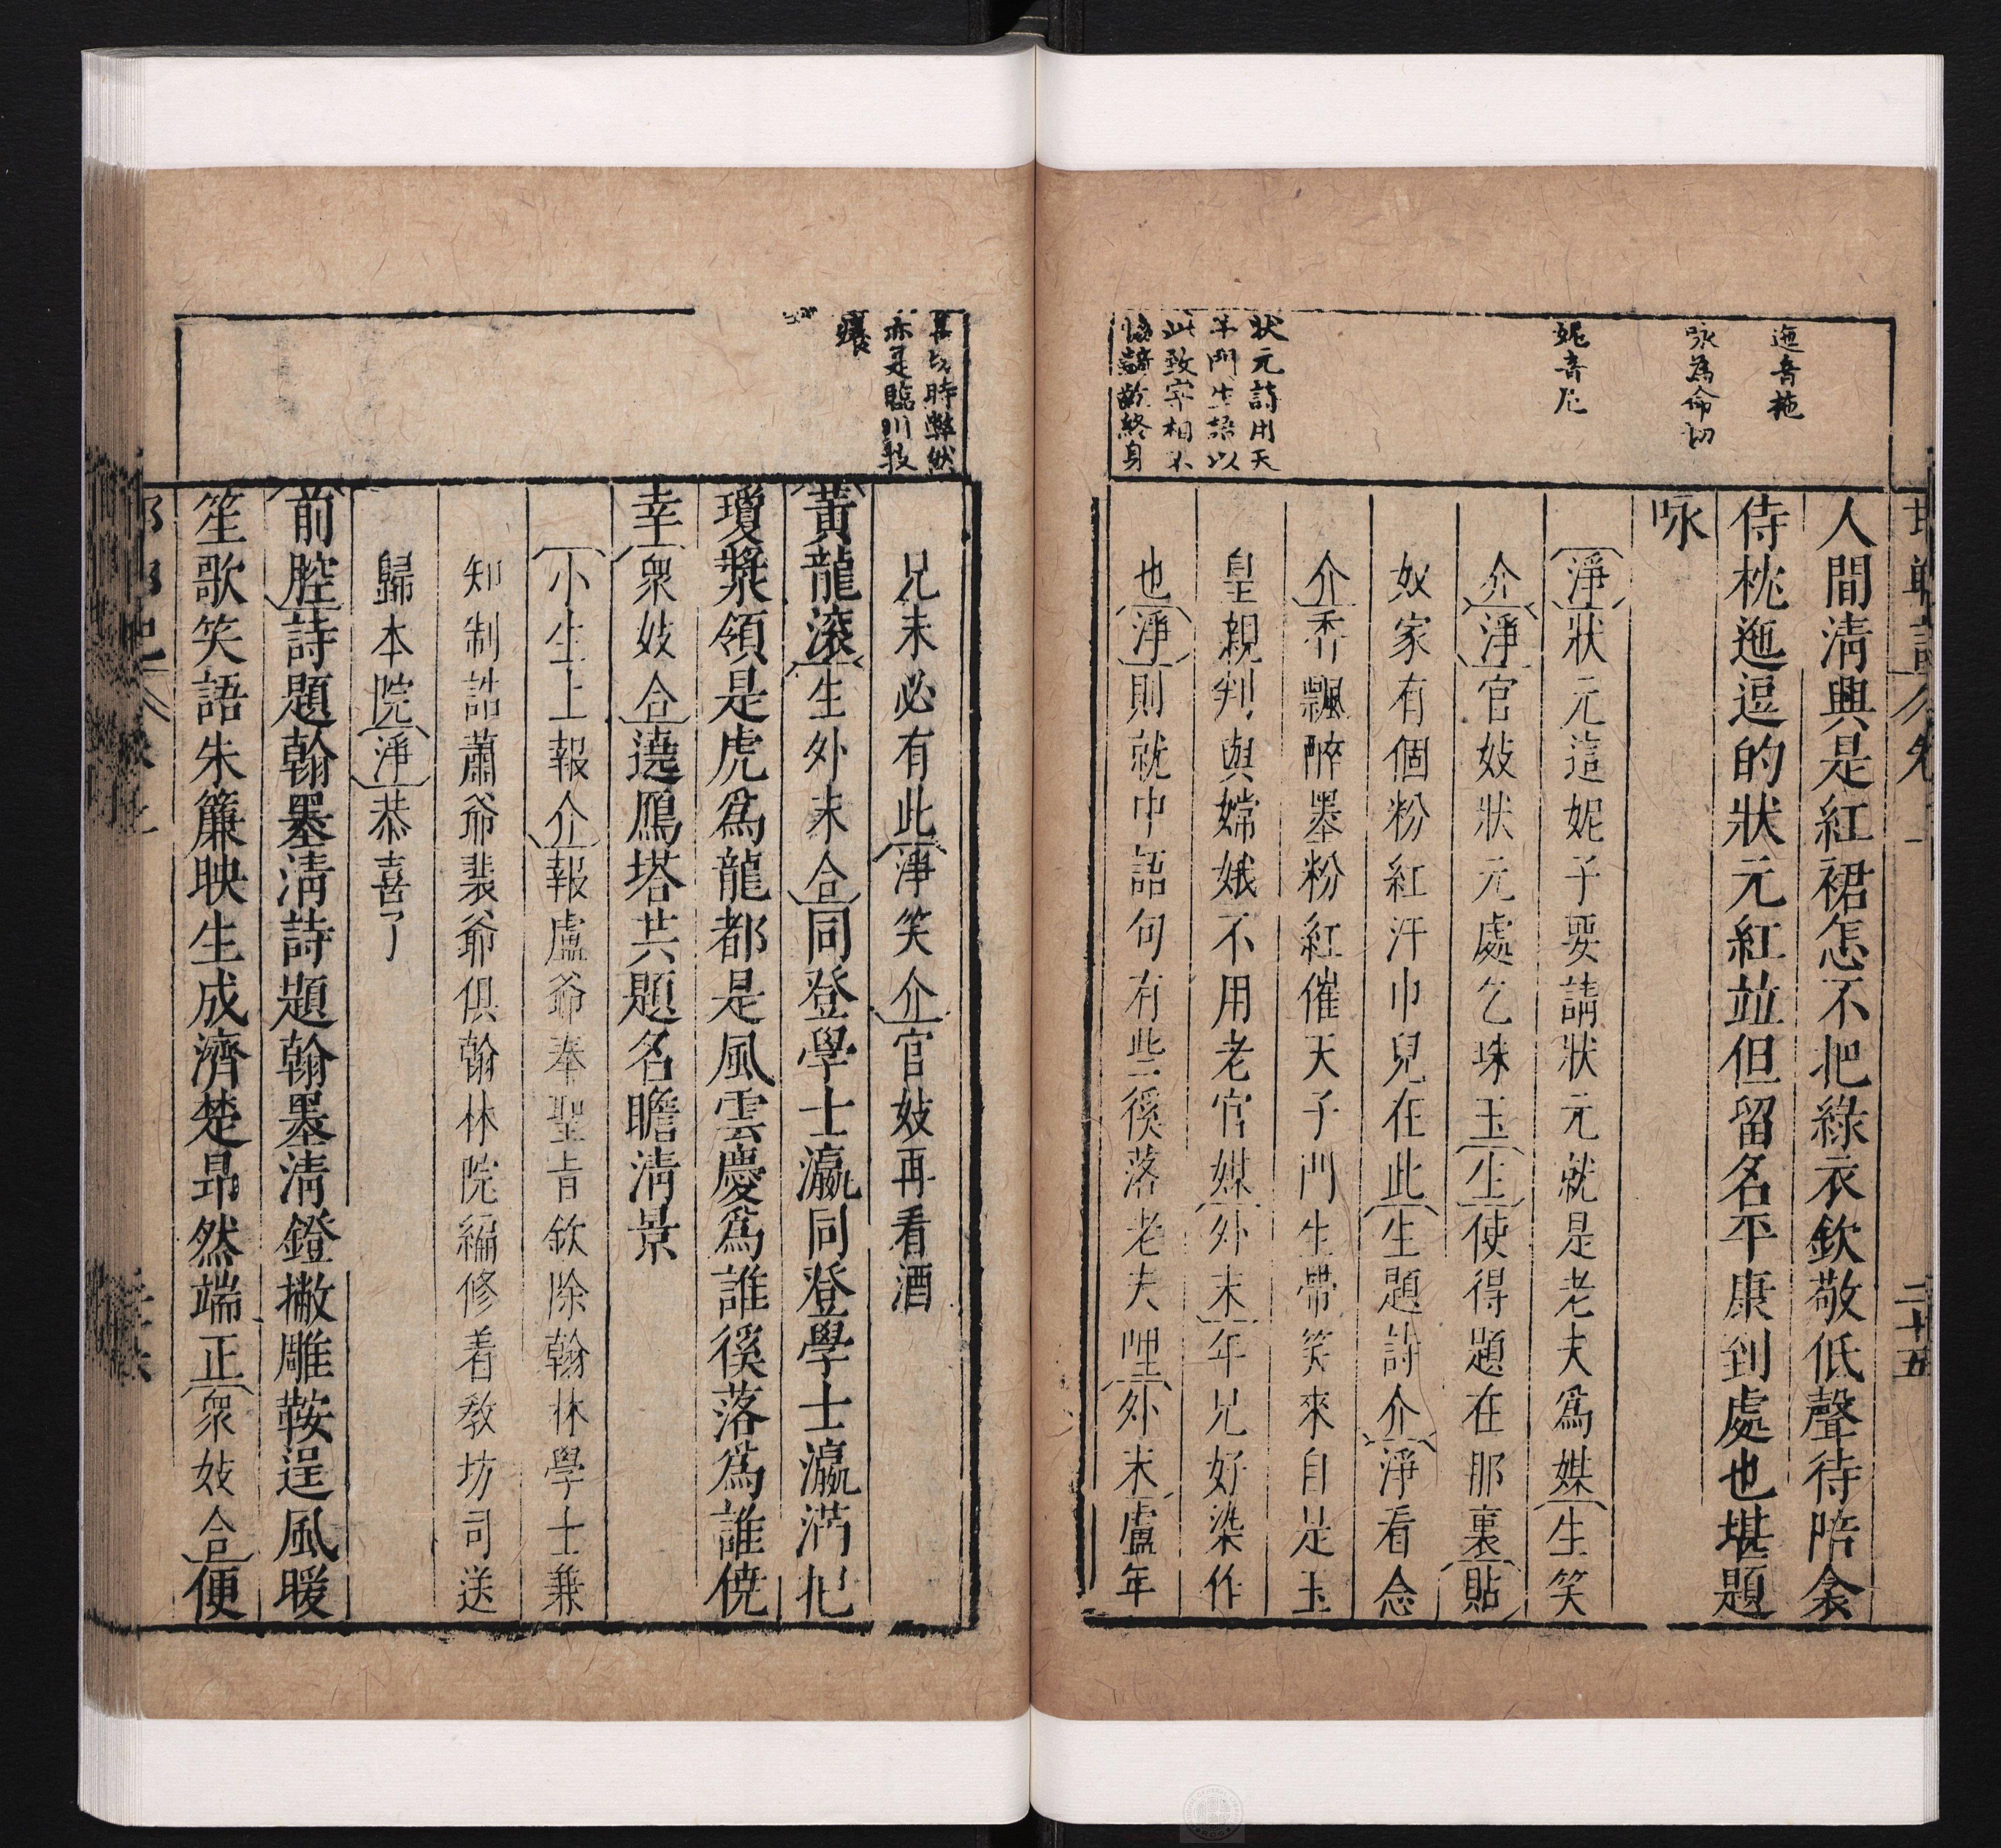 迤音拖
咏為命切
妮音尼
狀元詩用天
子門生語以
此致宰相不
人間清興是紅裙怎不把綠衣欽敬低聲待陪衾
侍枕迤逗的狀元紅並但留名平康到處也堪題
咏
淨狀元這妮子要請狀元就是老夫爲媒生笑
介淨官妓狀元處乞珠玉生使得題在那裏貼
奴家有個粉紅汗巾兒在此生題詩介淨看念
介香飄醉墨粉紅催天子門生帶笑來自是玉
皇親判與嫦娥不用老官媒外末年兄好染作
也淨則就中語句有些徯落老夫哩外末盧年
二十五
時弊然
亦是臨川技
癢
兄未必有此淨笑介官妓再看酒
黃龍滾生外末合同登學士瀛同登學士瀛滿把
瓊漿領是虎爲龍都是風雲慶爲誰徯落爲誰僥
幸衆妓合遶鴈塔共題名瞻清景
小生上報介報盧爺奉聖旨欽除翰林學士兼
知制誥蕭爺裴爺俱翰林院編修着教坊司送
歸本院淨恭喜了
前腔詩題翰墨清詩題翰墨清鐙撇雕鞍逞風暖
笙歌笑語朱簾映生成濟楚昂然端正衆妓合便